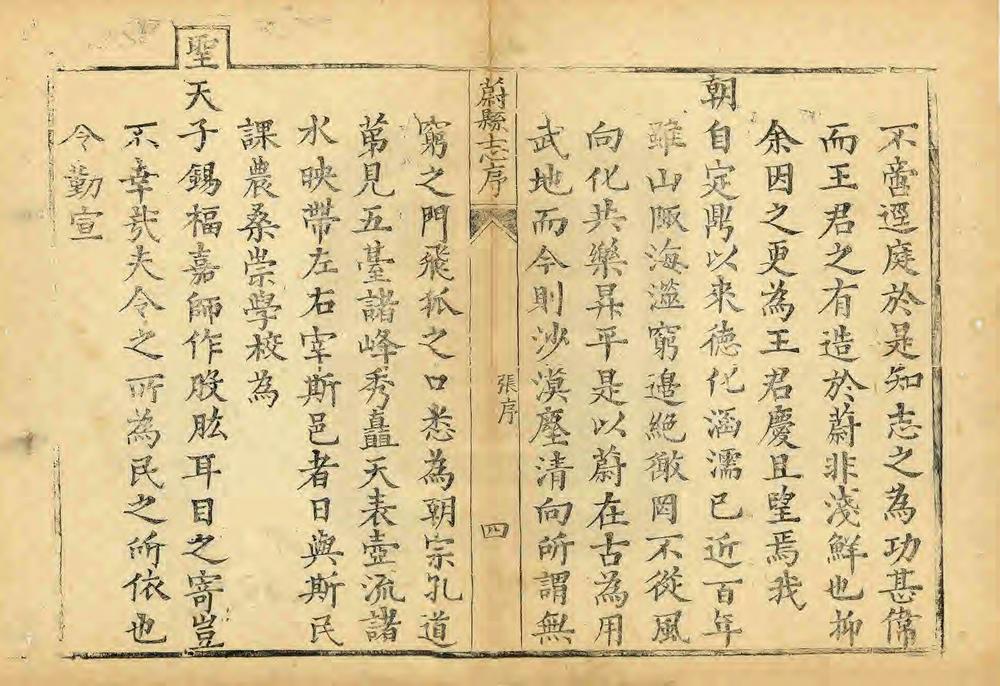 不啻逕庭於是知志之為功甚偉
而王君之有造於蔚非淺鮮也抑
余因之更為王君慶且望焉我
朝自定鼎以來德化涵濡已近百年
雖山陬海澨窮邊絕徼罔不從風
向化共樂昇平是以蔚在古為用
武地而今則沙漠塵清向所謂無
蔚縣志序
張序
四
窮之門飛狐之口悉為朝宗孔道
苐見五臺諸峰秀矗天表壺流諸
水映帶左右宰斯邑者日與斯民
課農桑崇學校為
聖天子錫福嘉師作股肱耳目之寄豈
不幸哉夫令之所為民之所依也
令勤宣